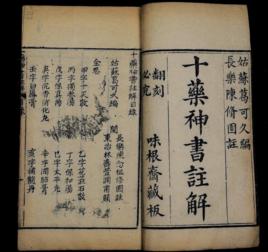 姑蘇葛可久編
長樂陳脩園註
十藥神書註解
味根齋藏板
翻刻
必究
十藥神書註解目錄
姑蘇葛可久編
甲字十灰散 乙字花蕊石散
丙字獨參湯 丁字保和湯
戊字保真湯 己字太平丸
庚字沉香消化丸 辛字潤肺膏
壬字白鳳膏 癸字補髓丹